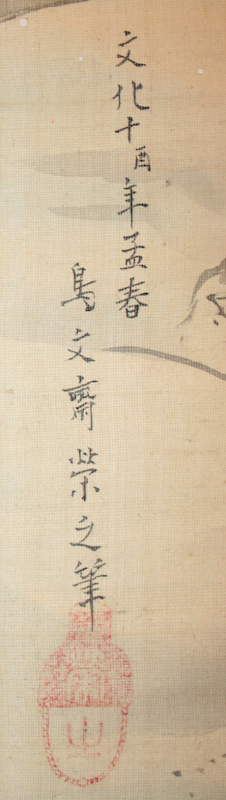 文化十酉年孟春
鳥文齋榮之筆